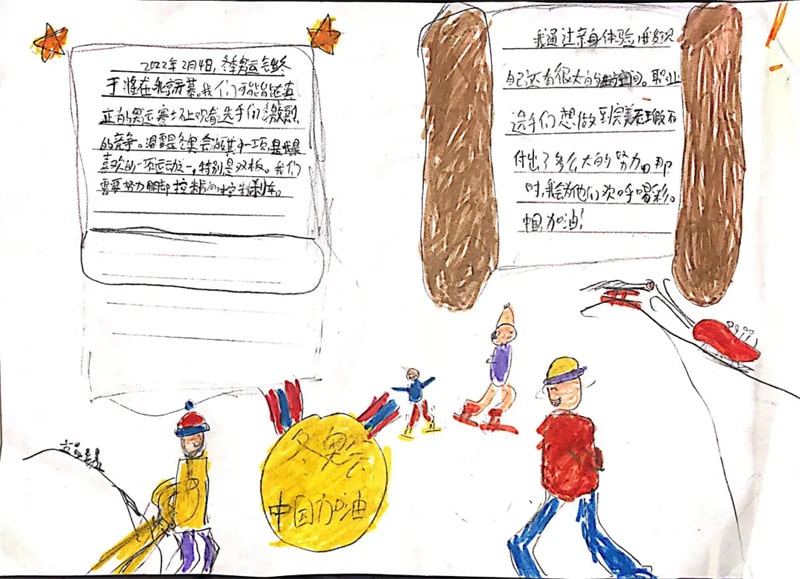 2022年2月4日，冬奥会终
于将在我们屏幕。我们可能能在真
正的奥运赛场上观看选手们激烈
的竞争。滑雪是冬奥会的其中一项,是我最
喜欢的一项运动之一,特别是双板。我们
需要努力用脚控制方向控制刹车。
我通过亲身体验滑雪发现
自己还有很大的进步空间。职业
选手们想做到完美
付出了多么大的努力。那
时,我会为他们欢呼喝彩。
中国,加油!
冬奥会
中国加油